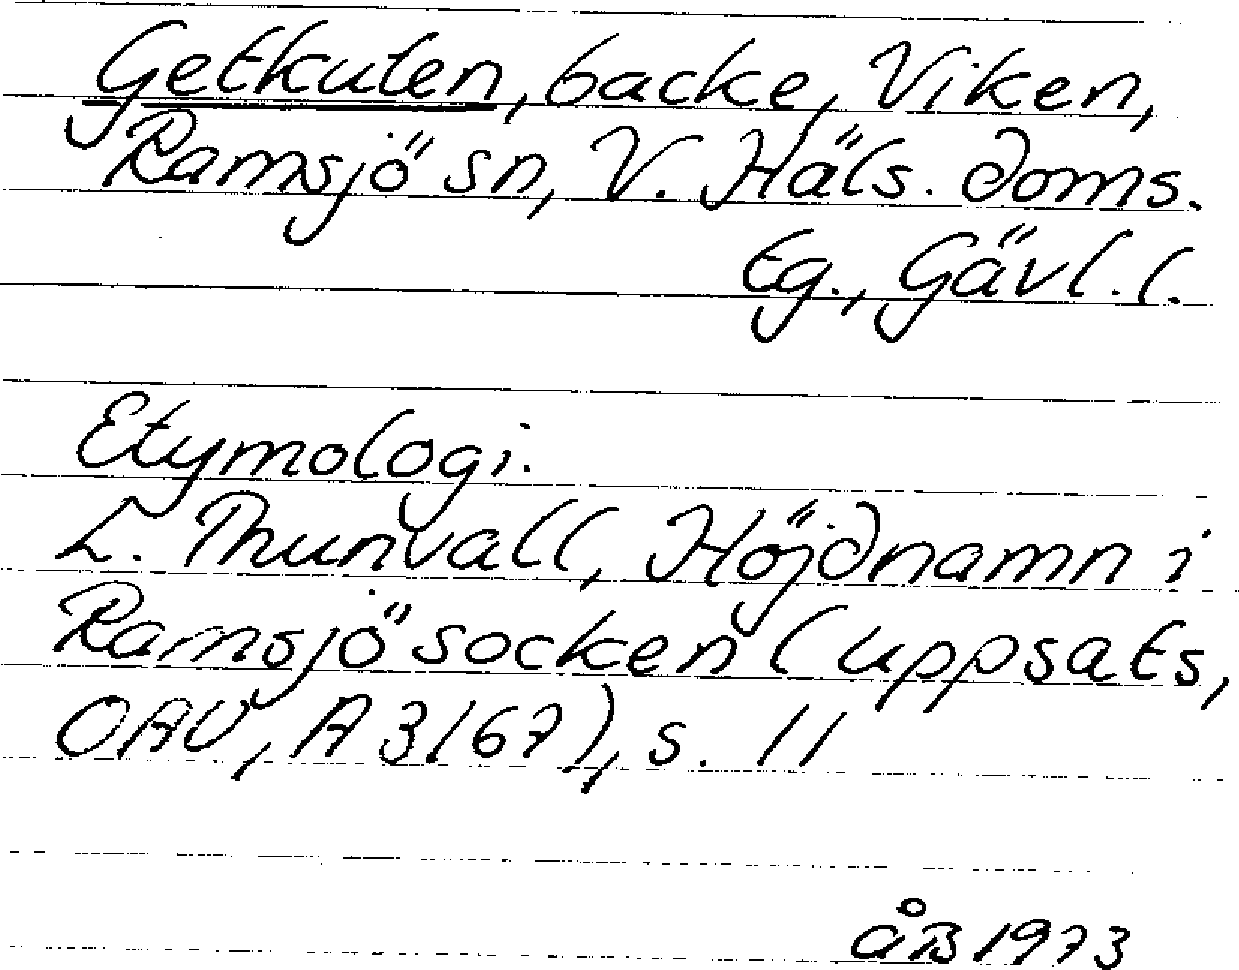 Getkulen, backe, Viken,
Ramsjö sn, V. Häls. doms.
Eg., Gävl. l.
Etymologi.
L. Thunvall, Höjdnamn i
Ramsjö socken (uppsats,
OAU, A 3167), s. 11
åB 1973